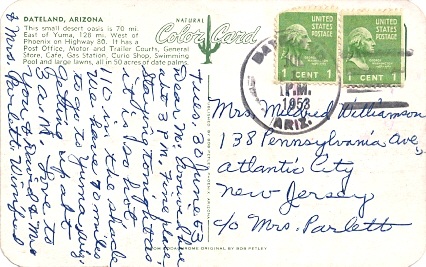 DATELAND, ARIZONA
This small desert oasis is 70 mi.
East of Yuma, 128 mi. West of
Phoenix on Highway 80. It has a
Post Office, Motor and Trailer Courts, General
Store, Cafe, Gas Station, Curio Shop, Swimming
Pool and large lawns, all in 50 acres of date palms.
NATURAL
Color Card
UNITED STATES
POSTAGE
1 CENT 1
UNITED STATES
POSTAGE
1 CENT 1
P.M.
1953
ARIZ.
Tues, 30 June 53
Dear M.
at 3 P.M. time here
Staying tonight as
it is so hot
110 in the shade
We have 70 miles
to go to Yuma, Ariz,
Getting up at
3 a.m. Love to
you & Reid & Mrs
& Mrs Parlett Winifred
Mrs. Mildred Williamson
138 Pennsylvania Ave,
Atlantic City
New Jersey
c/o Mrs. Parlett
KODACHROME ORIGINAL BY BOB PETLEY